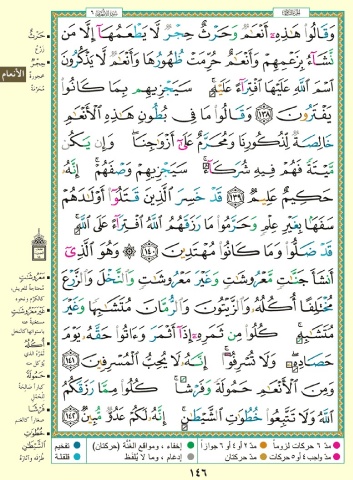 وَقَالُوا۟ هَـٰذِهِۦٓ أَنْعَـٰمٌ وَحَرْثٌ حِجْرٌ لَّا يَطْعَمُهَآ إِلَّا مَن
نَّشَآءُ بِزَعْمِهِمْ وَأَنْعَـٰمٌ حُرِّمَتْ ظُهُورُهَا وَأَنْعَـٰمٌ لَّا يَذْكُرُونَ
ٱسْمَ ٱللَّهِ عَلَيْهَا ٱفْتِرَآءً عَلَيْهِ ۚ سَيَجْزِيهِم بِمَا كَانُوا۟
يَفْتَرُونَ ١٣٨ وَقَالُوا۟ مَا فِى بُطُونِ هَـٰذِهِ ٱلْأَنْعَـٰمِ
خَالِصَةٌ لِّذُكُورِنَا وَمُحَرَّمٌ عَلَىٰٓ أَزْوَٰجِنَا ۖ وَإِن يَكُن
مَّيْتَةً فَهُمْ فِيهِ شُرَكَآءُ ۚ سَيَجْزِيهِمْ وَصْفَهُمْ ۚ إِنَّهُۥ
حَكِيمٌ عَلِيمٌ ١٣٩ قَدْ خَسِرَ ٱلَّذِينَ قَتَلُوٓا۟ أَوْلَـٰدَهُمْ
سَفَهًۢا بِغَيْرِ عِلْمٍ وَحَرَّمُوا۟ مَا رَزَقَهُمُ ٱللَّهُ ٱفْتِرَآءً عَلَى ٱللَّهِ ۚ
قَدْ ضَلُّوا۟ وَمَا كَانُوا۟ مُهْتَدِينَ ١٤٠ ۞ وَهُوَ ٱلَّذِىٓ
أَنشَأَ جَنَّـٰتٍ مَّعْرُوشَـٰتٍ وَغَيْرَ مَعْرُوشَـٰتٍ وَٱلنَّخْلَ وَٱلزَّرْعَ
مُخْتَلِفًا أُكُلُهُۥ وَٱلزَّيْتُونَ وَٱلرُّمَّانَ مُتَشَـٰبِهًا وَغَيْرَ
مُتَشَـٰبِهٍ ۚ كُلُوا۟ مِن ثَمَرِهِۦٓ إِذَآ أَثْمَرَ وَءَاتُوا۟ حَقَّهُۥ يَوْمَ
حَصَادِهِۦ ۖ وَلَا تُسْرِفُوٓا۟ ۚ إِنَّهُۥ لَا يُحِبُّ ٱلْمُسْرِفِينَ ١٤١
وَمِنَ ٱلْأَنْعَـٰمِ حَمُولَةً وَفَرْشًا ۚ كُلُوا۟ مِمَّا رَزَقَكُمُ
ٱللَّهُ وَلَا تَتَّبِعُوا۟ خُطُوَٰتِ ٱلشَّيْطَـٰنِ ۚ إِنَّهُۥ لَكُمْ عَدُوٌّ مُّبِينٌ ١٤٢
الأنعام
حَرْثٌ
زَرْعٌ
حِجْرٌ
محجورة
مُحَرَّمَة
مَعْرُوشَاتٍ
غَيْرَ مَعْرُوشَاتٍ
أُكُلُهُ
حَمُولَةً
فَرْشًا
خُطُوَاتِ
الشَّيْطَانِ
مدّ ٦ حركات لزوماً
مدّ ٢ أو ٤ أو ٦ جوازاً
إخفاء، ومواقع الغُنَّة (حركتان)
تفخيم
مدّ واجب ٤ أو ٥ حركات
مدّ حركتان
إدغام، وما لا يُلفَظ
قلقلة
١٤٦